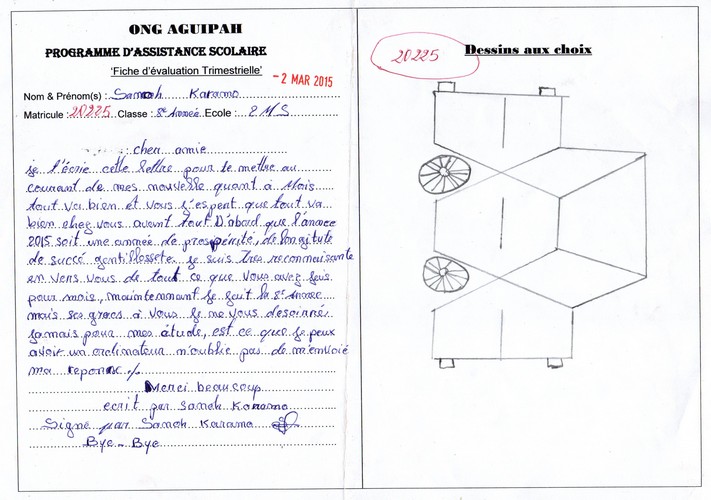 ONG AGUIPAH
PROGRAMME D'ASSISTANCE SCOLAIRE
'Fiche d'évaluation Trimestrielle'
- 2 MAR 2015
Nom & Prénom(s) : Sanoh Karamo
Matricule : 20225 Classe : 8e Année Ecole : 2 M S
cher amie
je t'écrie cette lettre pour te mettre au
courant de mes nouvelle quant à Mois
tout va bien et vous j'espent que tout va
bien chez vous avant tout D'abord que l'année
2015 soit une année de prospérité, de longitute
de succé gentillossete je suis Tres reconnaissante
en vers vous de tout ce que vous avez fais
pour mois, maintennant je fait la 8e Année
mais ses graces à vous je ne vous desoinné
jamais pour mes étude, est ce que je peux
avoir un ordinateur n'oublie pas de m'envoié
ma reponse %
Merci beaucoup
ecrit par Sanoh Karamo
Signe par Sanoh Karamo
Bye - Bye
20225
Dessins aux choix